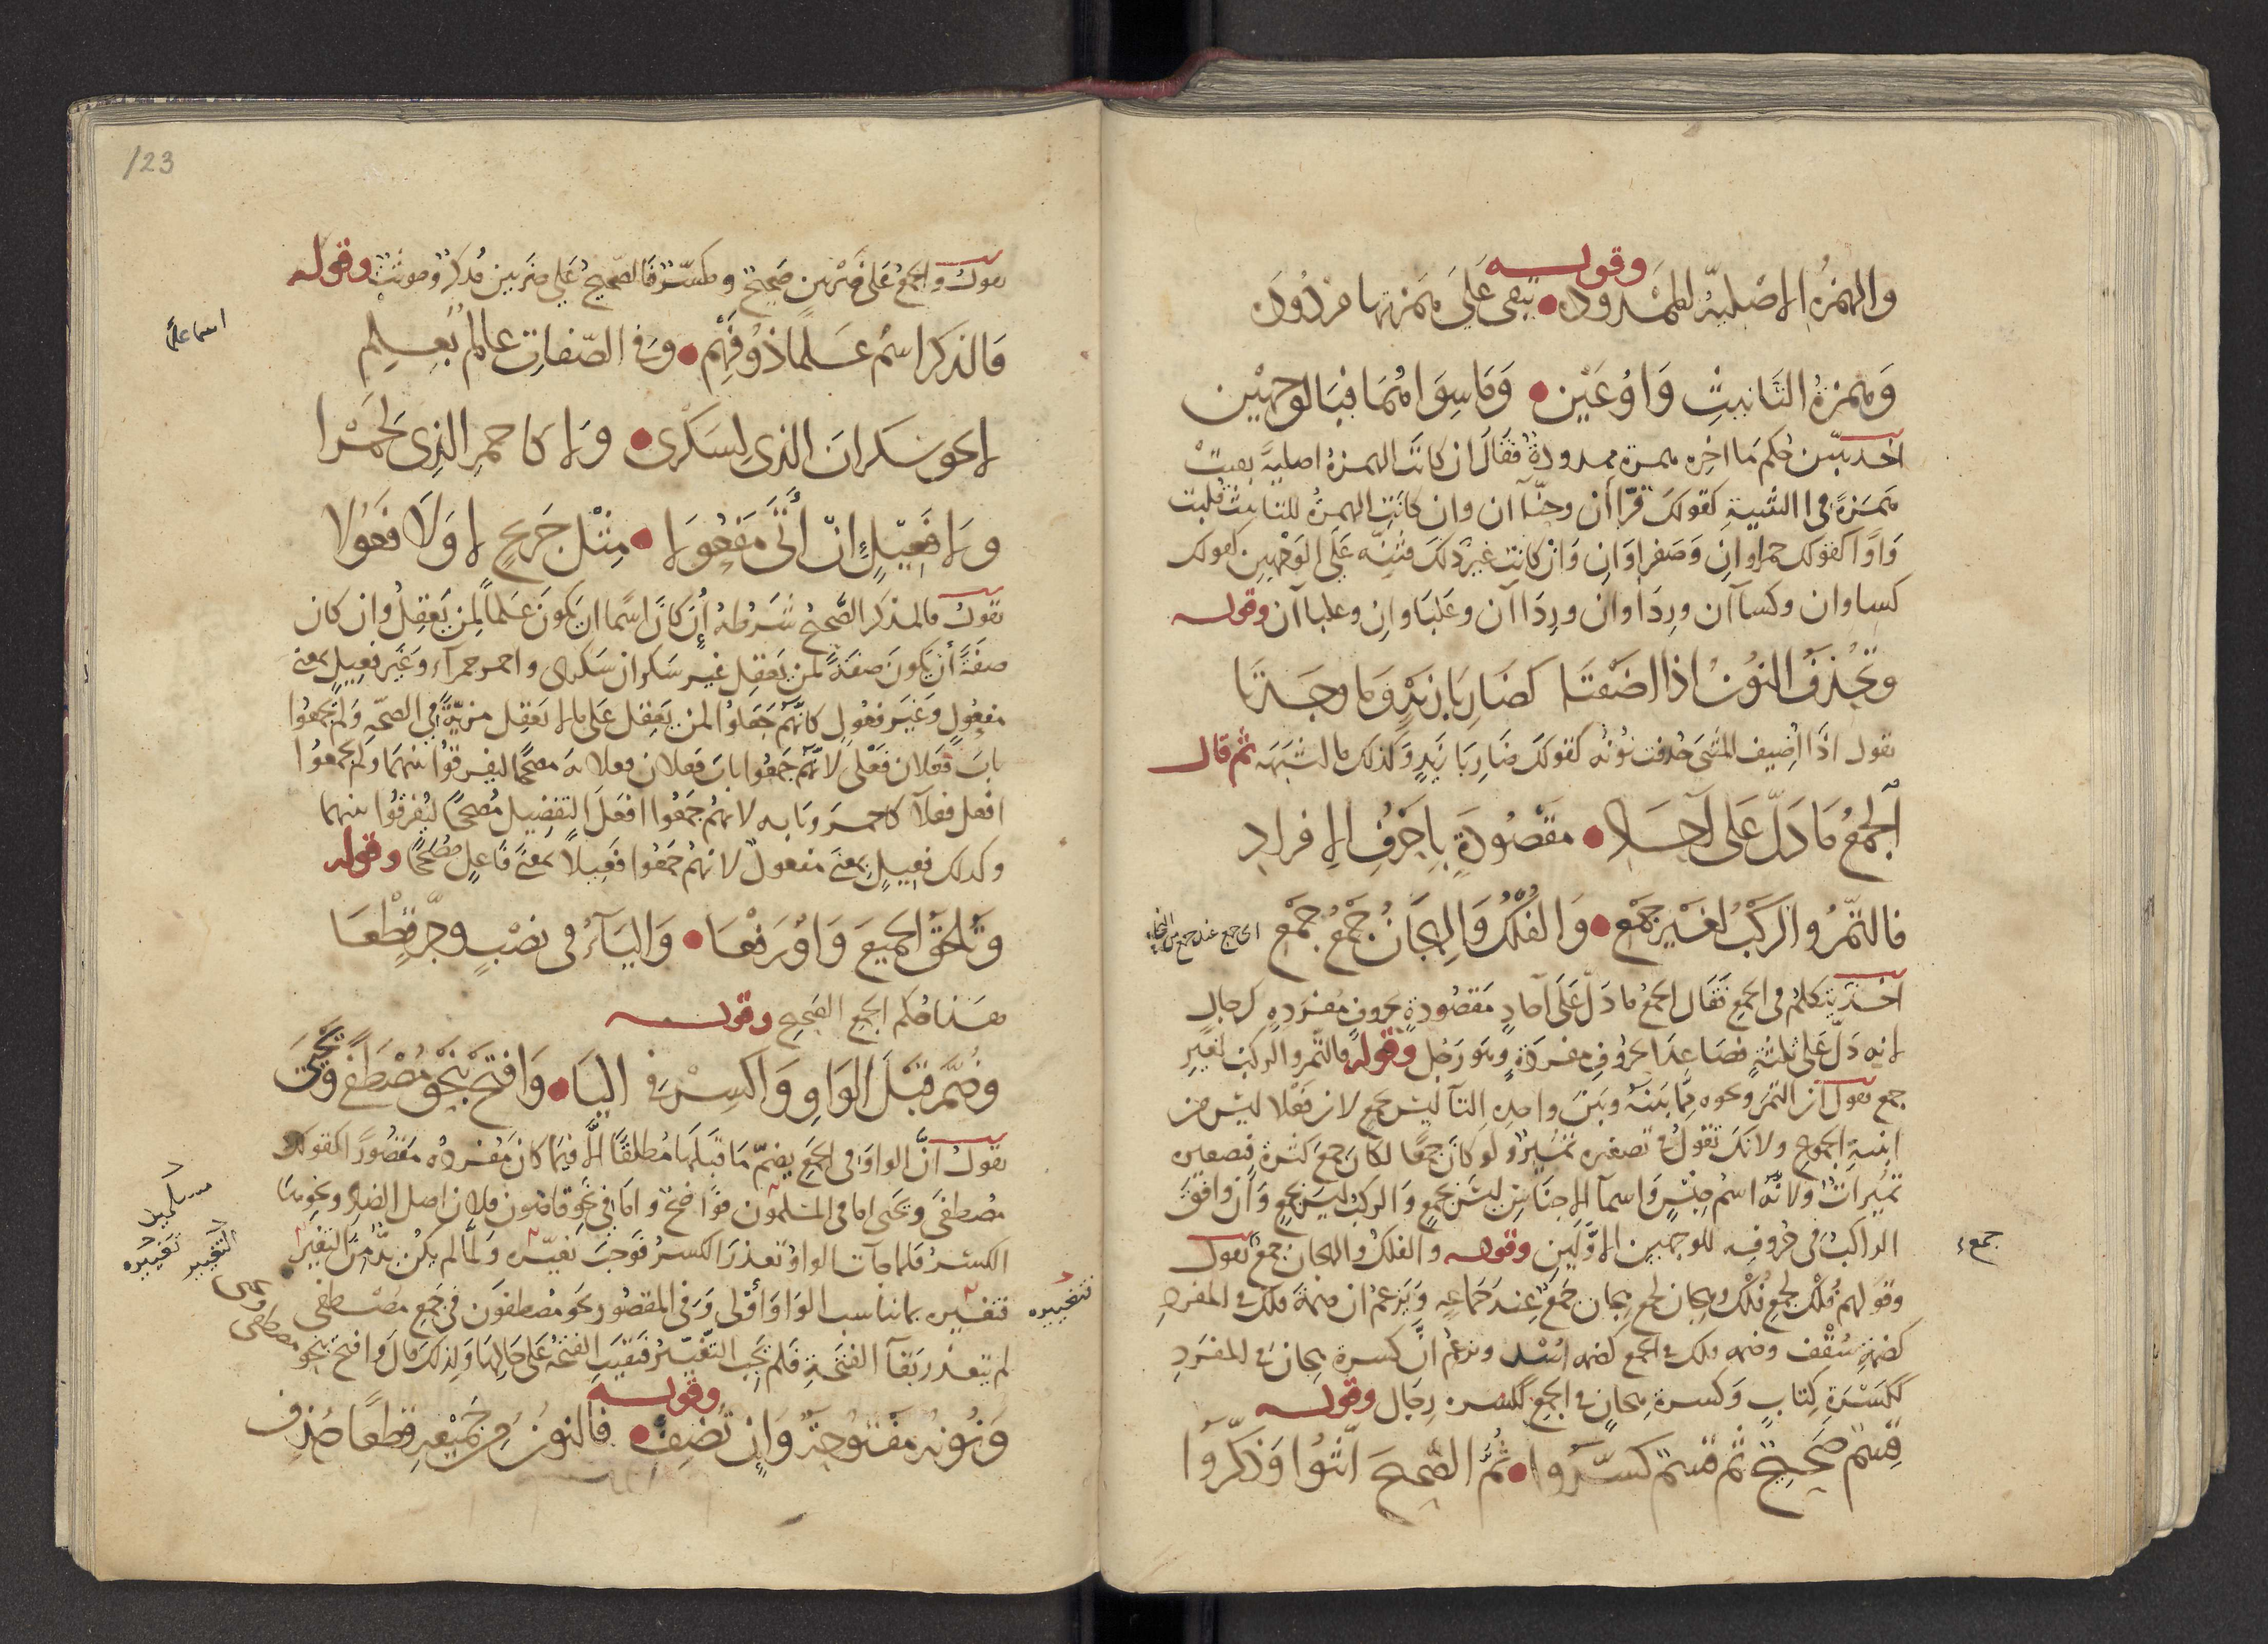 وقوله
والهمزة الاصلية الممدوده تبقى على همزتها مردوده
وهمزة التانيث واوعين وما سواهما فبالوجهين
اخذ يبين حكم ما اخره همزة ممدودة فقال ان كانت الهمزة اصلية بقيت
همزة في التثنية كقولك قراآن وحناآن وان كانت الهمزة للتانيث قلبت
واوا كقولك حمراوان وصفراوان وان كانت غير ذلك فثنه على الوجهين كقولك
كساوان وكساآن ورداوان ورداآن وعلباوان وعلباآن وقوله
وتحذف النون اذا اضفتا كضاربا زيد وما وجدتا
تقول اذا اضيف المثنى حذفت نونه كقولك ضاربا زيد وكذلك ما اشبهه ثم قال
الجمع ما دل على آحاد مقصودة باحرف الافراد
فالتمر والركب لغير جمع والفلك والهجان جمع جمع
اخذ يتكلم في الجمع فقال الجمع ما دل على آحاد مقصودة بحروف مفرده كرجال
لانه دل على ثلثة فصاعدا بحروف مفرده وهو رجل وقوله فالتمر والركب لغير
جمع تقول ان التمر ونحوه مما بينه وبين واحده التا ليس بجمع لان فعلا ليس من
ابنية الجموع ولانك تقول في تصغيره تمير ولو كان جمعا لكان جمع كثرة فتصغيره
تميرات ولانه اسم جنس واسما الاجناس ليس بجمع والركب ليس بجمع وان وافق
الراكب في حروفه للوجهين الاولين وقوله والفلك والهجان جمع تقول
جمع
وقولهم فلك لجمع فلك وهجان لجمع هجان جمع عند جماعه ويزعم ان ضمة فلك في المفرد
كضمة سقف وضمه فلك في الجمع كضمه اسد ونزعم ان كسرة هجان في المفرد
ككسرة كتاب وكسرة هجان في الجمع ككسرة رجال وقوله
قسم صحيح ثم قسم كسروا ثم الصحيح انثوا وذكروا
123
تقول والجمع على ضربين صحيح ومكسر فالصحيح على ضربين مذكر ومونث وقوله
فالذكر اسم علما ذو فهم وفي الصفات عالم بعلم
لا نحو سكران الذي لسكرى ولا كاحمر الذي لحمرا
ولا فعيل ان اتى مفعولا مثل جريح لا ولا فعولا
تقول فالمذكر الصحيح شرطه ان كان اسما ان يكون علما لمن يعقل وان كان
صفة ان يكون صفة لمن يعقل غير سكران سكرى واحمر حمرآء وغير فعيل بمعنى
مفعول وغير فعول كانهم جعلوا لمن يعقل على ما لا يعقل مزية في الصحه ولم يجمعوا
باب فعلان فعلى لانهم جمعوا باب فعلان فعلانه مصححا ليفرقوا بينهما ولم يجمعوا
افعل فعلآ كاحمر وبابه لانهم جمعوا افعل التفضيل مصححا ليفرقوا بينهما
وكذلك فعيل بمعنى مفعول لانهم جمعوا فعيلا بمعنى فاعل مصححا وقوله
وتلحق الجميع واو رفعا والياء في نصب وجر قطعا
هذا حكم الجمع الصحيح وقوله
وضم قبل الواو واكسر في اليا وافتح بنحو مصطفى ويحيى
تقول ان الواو في الجمع يضم ما قبلها مطلقا الا فيما كان مفرده مقصورا كقولك
مصطفى ويحيى اما في المسلمون فواضح واما في نحو قاضون فلان اصل الضاد ونحوها
الكسر فلما جآت الواو تعذر الكسر فوجب تغييره ولما لم يكن بد من التغير
تغييره
فتغييره بما يناسب الواو اولى وفي المقصور نحو مصطفون في جمع مصطفى
لم يتعذر بقآ الفتحة فلم يجب التغيير فبقيت الفتحة على حالها ولذلك قال وافتح بنحو مصطفى
وقوله
ونونه مفتوحة وان تضف فالنون من جميعه قطعا حذف